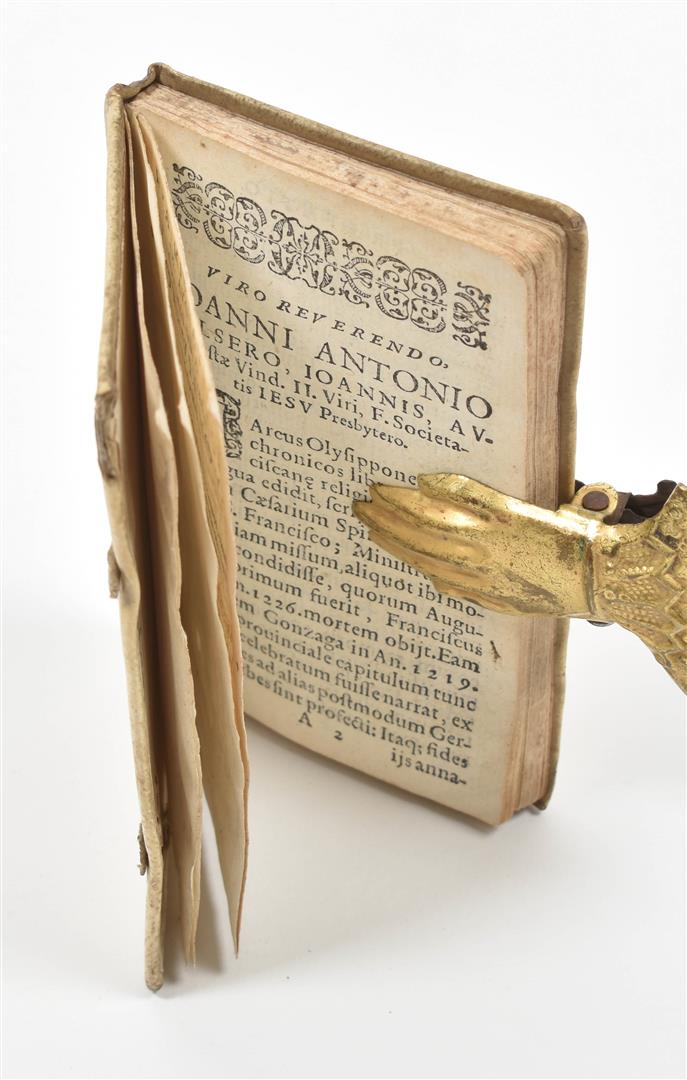 VIRO REVERENDO,
OANNI ANTONIO
LSERO, IOANNIS, AV-
stæ Vind. II. Viri, F. Societa-
tis IESV Presbytero.
MArcus Olysippone
chronicos lib
ciscanę religi
gua edidit, scri
Cæsarium Spi
Francisco; Ministr
iam missum, aliquot ibi mo-
condidisse, quorum Augu-
primum fuerit, Franciscus
n. 1226. mortem obijt. Eam
m Gonzaga in An. 1219.
prouinciale capitulum tunc
celebratum fuisse narrat, ex
s ad alias postmodum Ger-
bes sint profecti: Itaq; fides
A 2
ijs anna-